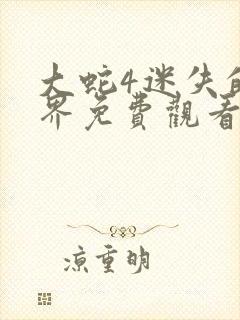 大蛇4迷失的
界免費觀看
涼重明